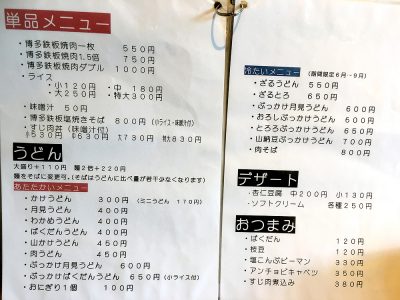 単品メニュー
・博多鉄板焼肉一枚 550円
・博多鉄板焼肉1.5倍 750円
・博多鉄板焼肉ダブル 1000円
・ライス
・小120円 ・中 180円
・大250円 ・特大300円
・味噌汁 50円
・博多鉄板塩焼きそば 800円 (小ライス・味噌汁付)
・すじ肉丼(味噌汁付)
うどん
大盛り+110円 麺2倍+220円
麺をそばに変更可。(そばはうどんに比べ量が若干少なくなります)
あたたかいメニュー
・かけうどん 300円 (ミニうどん 170円)
・月見うどん 400円
・わかめうどん 400円
・ばくだんうどん 400円
・山かけうどん 450円
・肉うどん 450円
・ぶっかけ月見うどん 600円
・ぶっかけばくだんうどん 650円 (小ライス付)
・おにぎり1個 100円
冷たいメニュー (期間限定6月~9月)
・ざるうどん 550円
・ざるとろ 650円
・ぶっかけ月見うどん 600円
・おろしぶっかけうどん 650円
・とろろぶっかけうどん 650円
・山納豆ぶっかけうどん 700円
・肉そば 800円
デザート
・杏仁豆腐 中200円 小130円
・ソフトクリーム 各種250円
おつまみ
・ばくだん 120円
・枝豆 120円
・塩こんぶピーマン 330円
・アンチョビキャベツ 350円
・すじ肉煮込み 380円